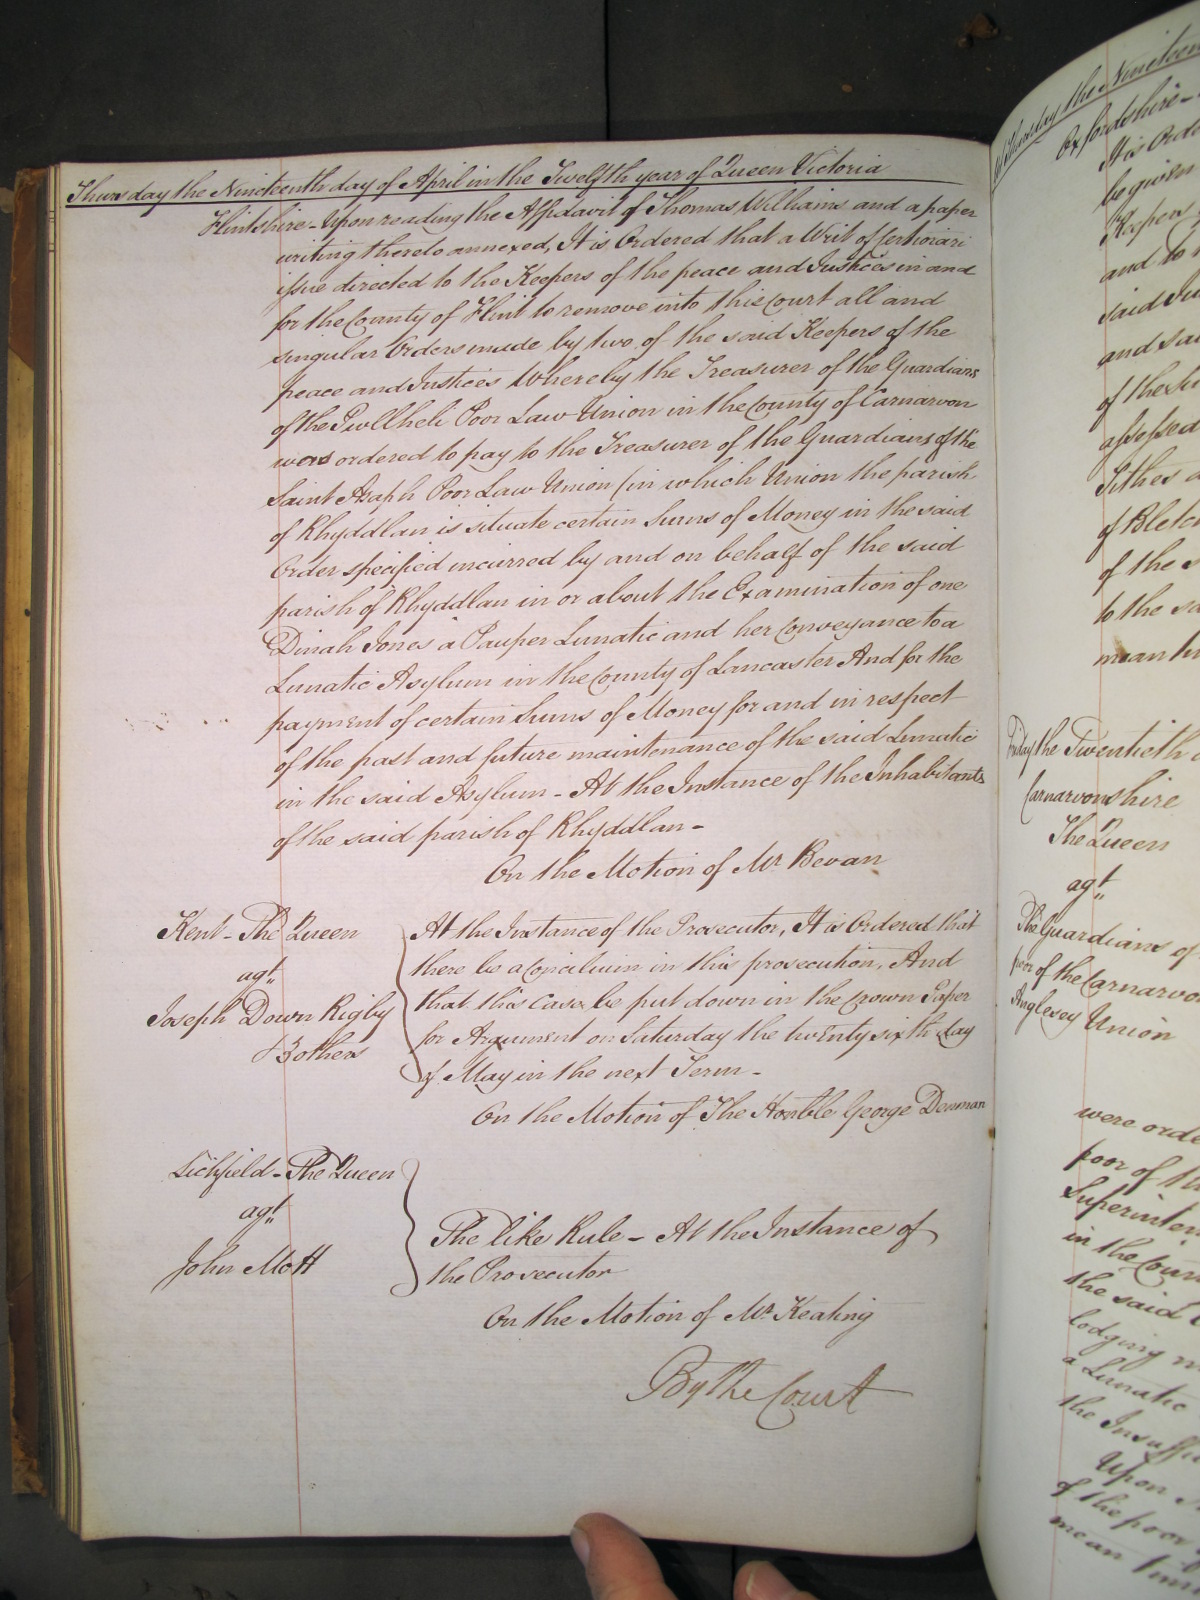 Thursday the Nineteenth day of April in the Twelfth year of Queen Victoria
Flintshire - Upon reading the Affidavit of Thomas Williams and a paper
writing thereto annexed, It is Ordered that a Writ of Certiorari
issue directed to the Keepers of the peace and Justices in and
for the County of Flint to remove into this Court all and
singular Orders made by two of the said Keepers of the
peace and Justices Whereby the Treasurer of the Guardians
of the Pwllheli Poor Law Union in the County of Carnarvon
were ordered to pay to the Treasurer of the Guardians of the
Saint Asaph Poor Law Union (in which Union the parish
of Rhyddlan is situate certain Sums of Money in the said
Order specified incurred by and on behalf of the said
parish of Rhyddlan in or about the Examination of one
Dinah Jones a Pauper Lunatic and her conveyance to a
Lunatic Asylum in the County of Lancaster And for the
payment of certain Sums of Money for and in respect
of the past and future maintenance of the said Lunatic
in the said Asylum - At the Instance of the Inhabitants
of the said parish of Rhyddlan -
On the Motion of Mr. Bevan
Kent - The Queen
agt.
Joseph Down Rigby
& others
At the Instance of the Prosecutor, It is Ordered that
there be a Concilium in this prosecution, And
that this Case be put down in the Crown Paper
for Argument on Saturday the twenty sixth day
of May in the next Term -
On the Motion of The Honble George Denman
Lichfield - The Queen
agt.
John Mott
The like Rule - At the Instance of
the Prosecutor
On the Motion of Mr. Keating
By the Court
the Nineteen
Oxfordshire -
It is Orde
be given
Keepers
and to
said Ju
and sa
of the
assessed
Tithes
of Bletc
of the
to the sa
mean
Friday the Twentieth
Carnarvonshire
The Queen
agt.
The Guardians of
poor of the Carnarvo
Anglesey Union
were orde
poor of th
Superinten
in the Coun
the said
lodging
a Lunatic
the Insuffi
Upon
of the poor
mean time